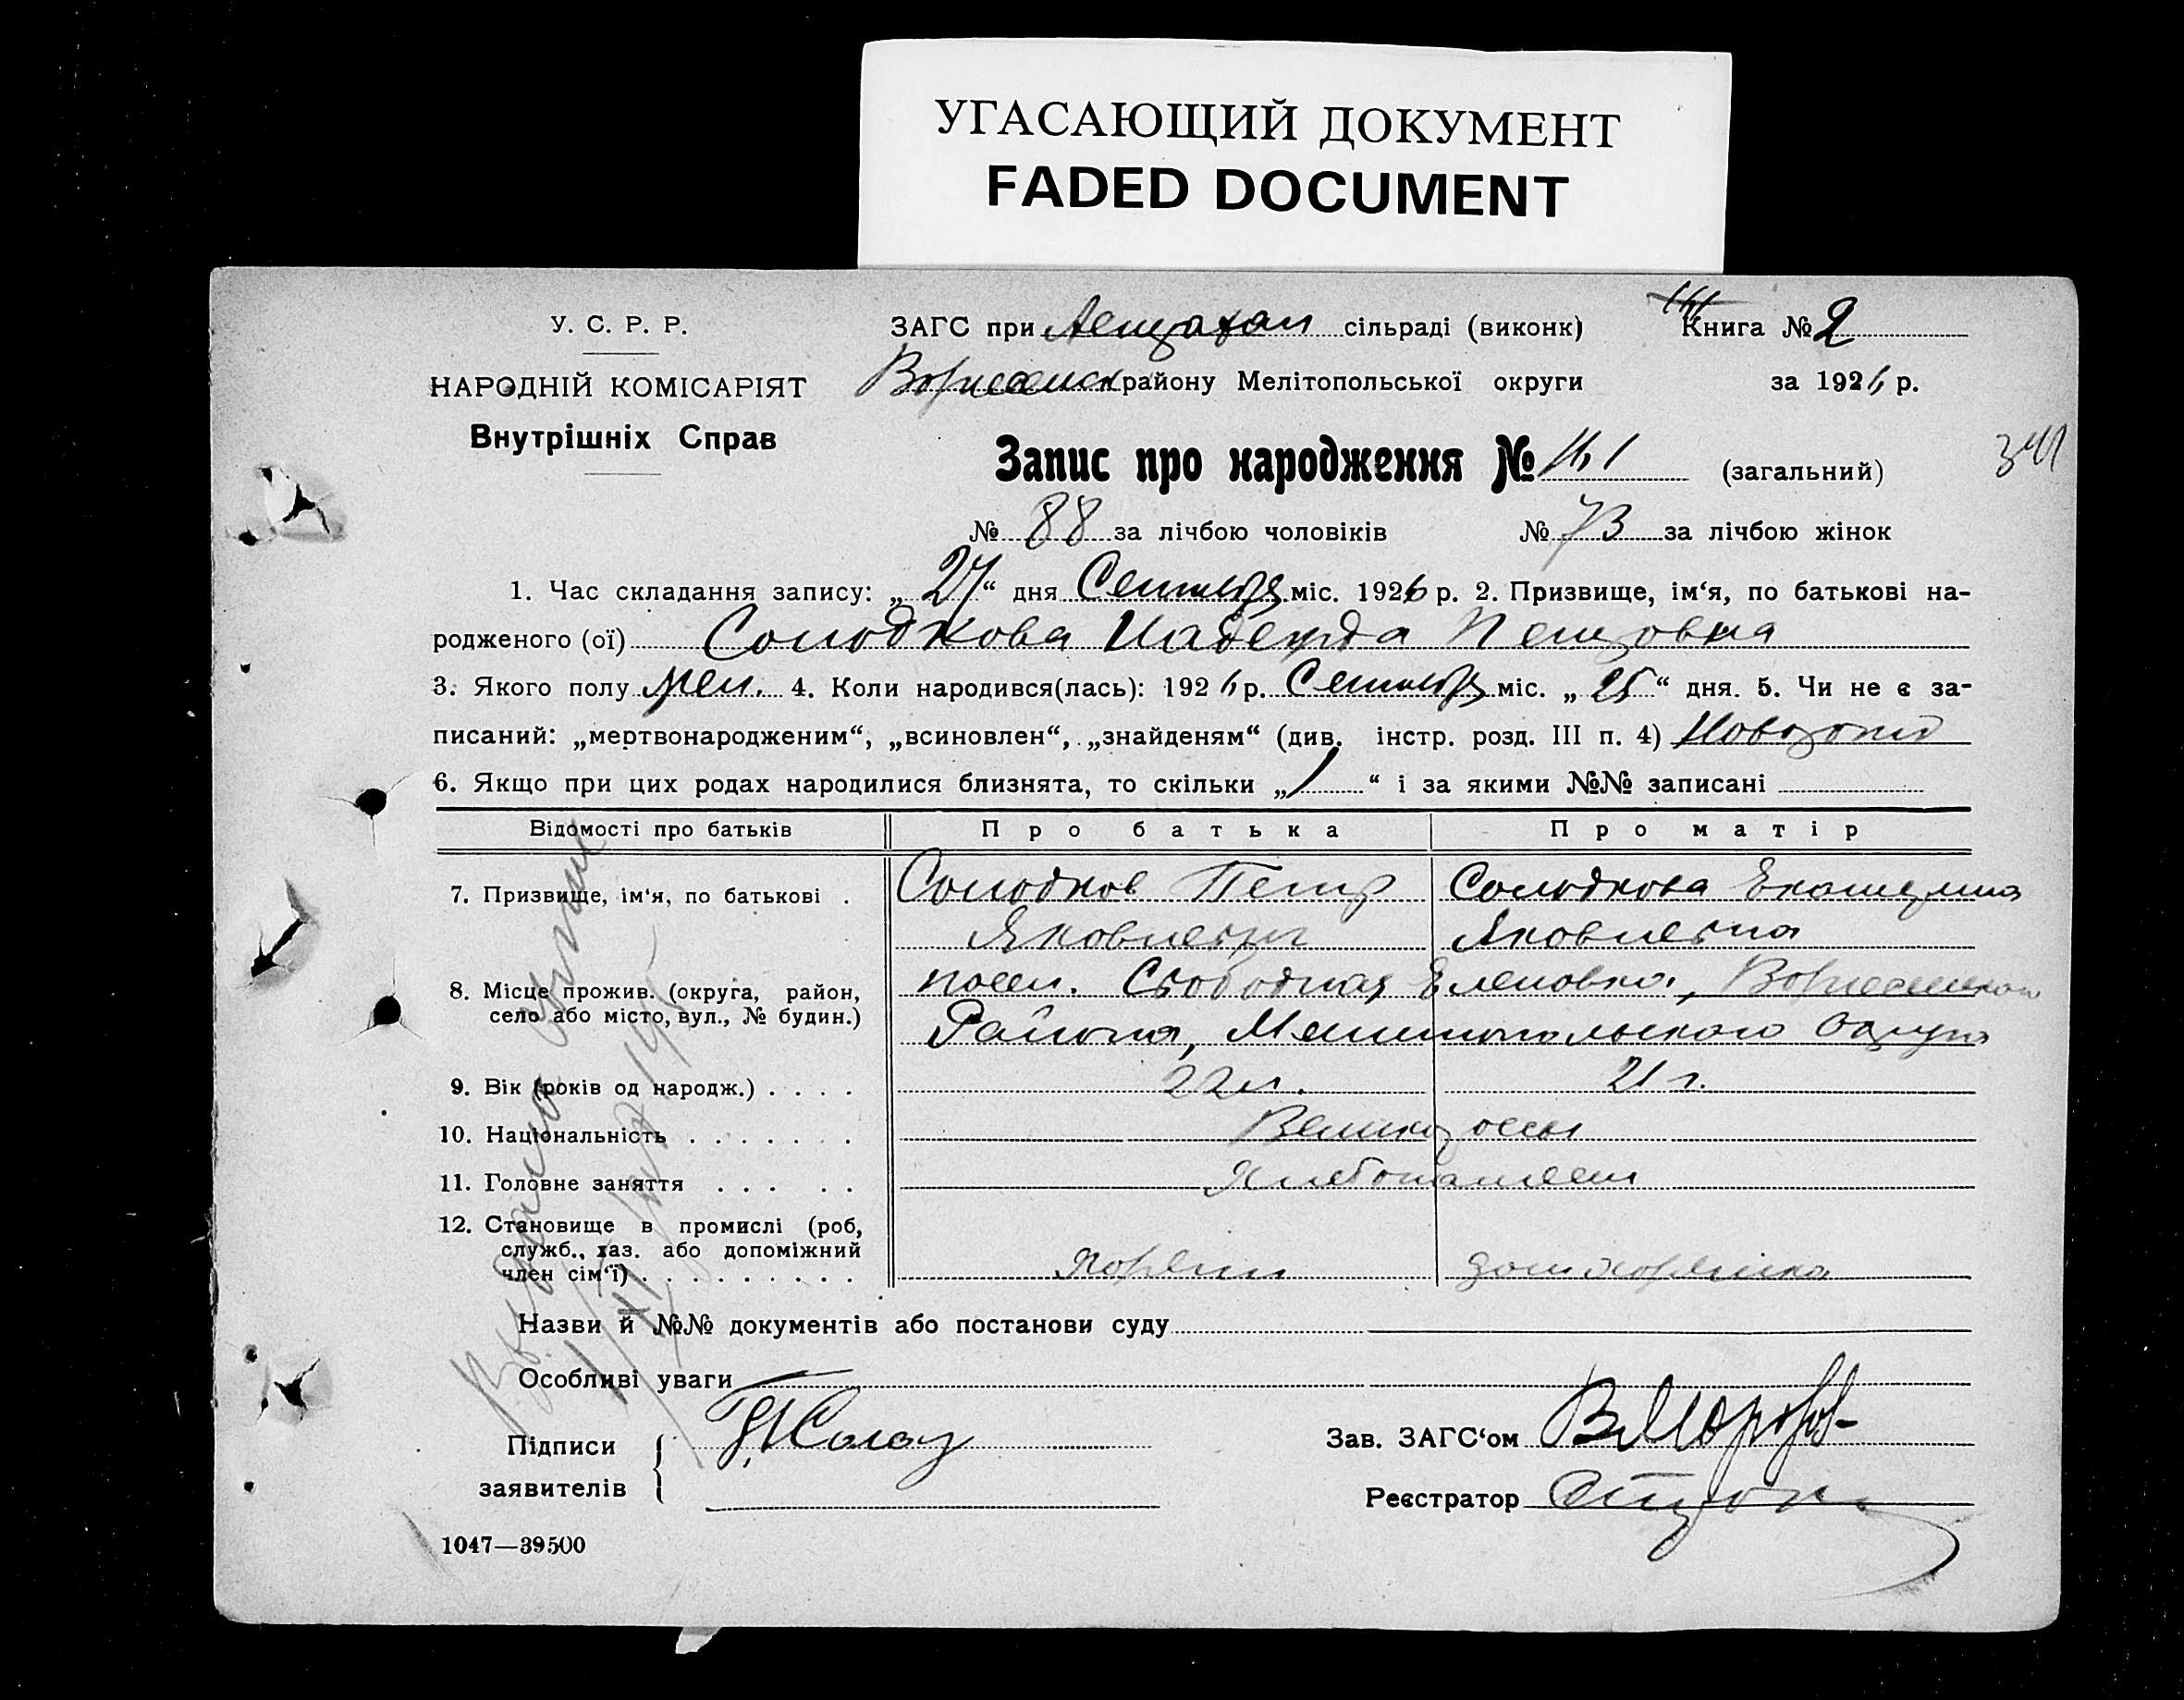 УГАСАЮЩИЙ ДОКУМЕНТ
FADED DOCUMENT
У. С. Р. Р.
НАРОДНІЙ КОМІСАРІЯТ
Внутрішніх Справ
ЗАГС при сільраді (виконк) Книга № 2
району Мелітопольської округи за 1926 р.
Запис про народження № 161 (загальний)
341
№ 88 за лічбою чоловіків № 73 за лічбою жінок
1. Час складання запису: „27“ дня Сентября міс. 1926 р. 2. Призвище, ім‘я, по батькові на-
родженого (ої) Солодкова Надежда Петровна
3. Якого полу жен. 4. Коли народився(лась): 1926 р. Сентября міс. „25“ дня. 5. Чи не є за-
писаний: „мертвонародженим“, „всиновлен“, „знайденям“ (див. інстр. розд. III п. 4)
6. Якщо при цих родах народилися близнята, то скільки „ “ і за якими №№ записані
Відомості про батьків Про батька Про матір
7. Призвище, ім‘я, по батькові . Солодков Петр Солодкова Екатерина
Яковлевич Яковлевна
8. Місце прожив. (округа, район, село або місто, вул., № будин.) посел. Свободная Еленовка,
Района, Мелитопольского Округа
9. Вік (років од народж.) . . . . 22 л. 21 г.
10. Національність . . . . . . . Великороссы
11. Головне заняття . . . . . Хлебопашест
12. Становище в промислі (роб, служб., хаз. або допоміжний член сім‘ї) . . . . . . . . . хозяин домохозяйка
Назви й №№ документів або постанови суду
Особливі уваги
Підписи
заявителів
Зав. ЗАГС‘ом
Реєстратор
1047—39500